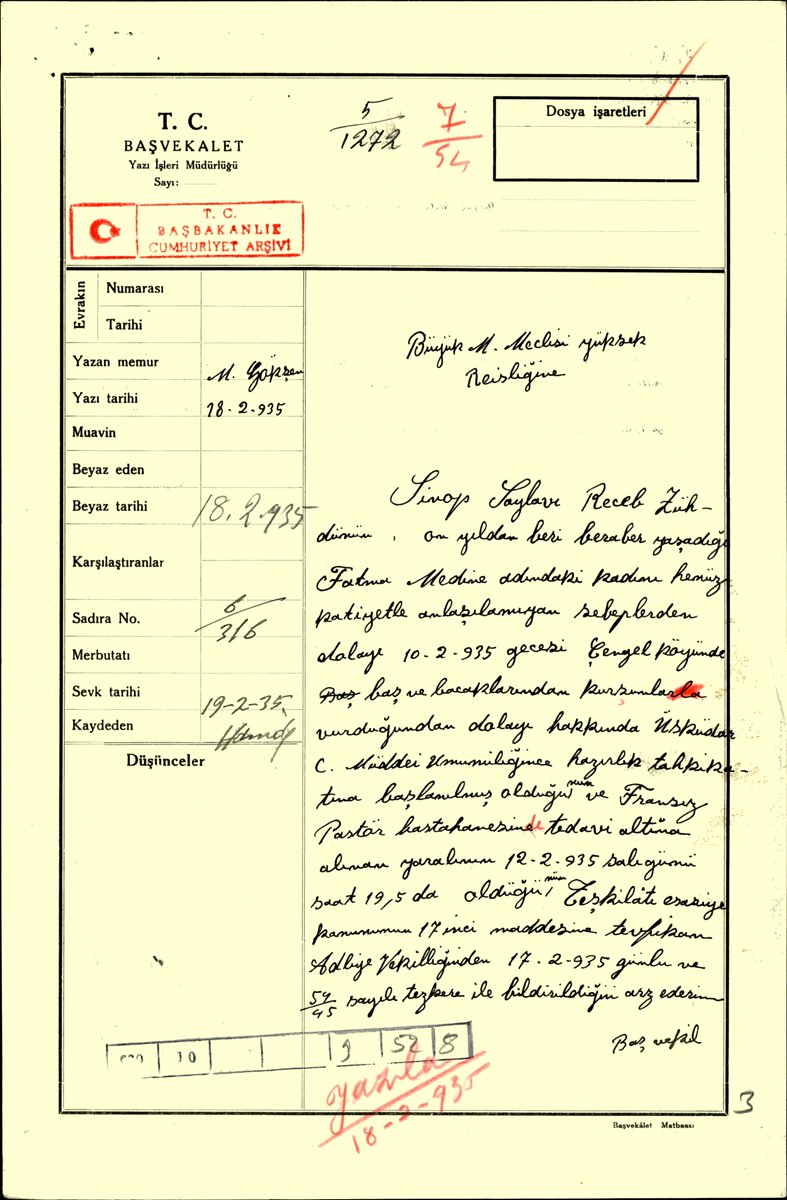 5
1272
7
54
Dosya işaretleri
T. C.
BAŞVEKALET
Yazı İşleri Müdürlüğü
Sayı:
T. C.
BAŞBAKANLIK
CUMHURİYET ARŞİVİ
Evrakın
Numarası
Tarihi
Yazan memur
M. Gökşen
Yazı tarihi
18-2-935
Muavin
Beyaz eden
Beyaz tarihi
18.2.935
Karşılaştıranlar
Sadıra No.
6
316
Merbutatı
Sevk tarihi
19-2-35
Kaydeden
Düşünceler
Büyük M. Meclisi yüksek
Reisliğine
Sinop Saylavı Receb Züh-
dünün, on yıldan beri beraber yaşadığı
Fatma Medine adındaki kadını henüz
katiyetle anlaşılamıyan sebeplerden
dolayı 10-2-935 gecesi Çengel köyünde
Baş baş ve bacaklarından kurşunlarla
vurduğundan dolayı hakkında Üsküdar
C. Müddei Umumiliğince hazırlık tahkika-
tına başlanılmış olduğu nun ve Fransız
Pastör hastahanesinde tedavi altına
alınan yaralının 12-2-935 salı günü
saat 19,5 da öldüğü nün Teşkilâtı esasiye
kanununun 17 inci maddesine tevfikan
Adliye Vekilliğinden 17-2-935 günlü ve
54/45 sayılı tezkere ile bildirildiğini arz ederim
Baş vekil
030 10 9 52 8
yazıla
18-2-935
3
Başvekâlet Matbaası